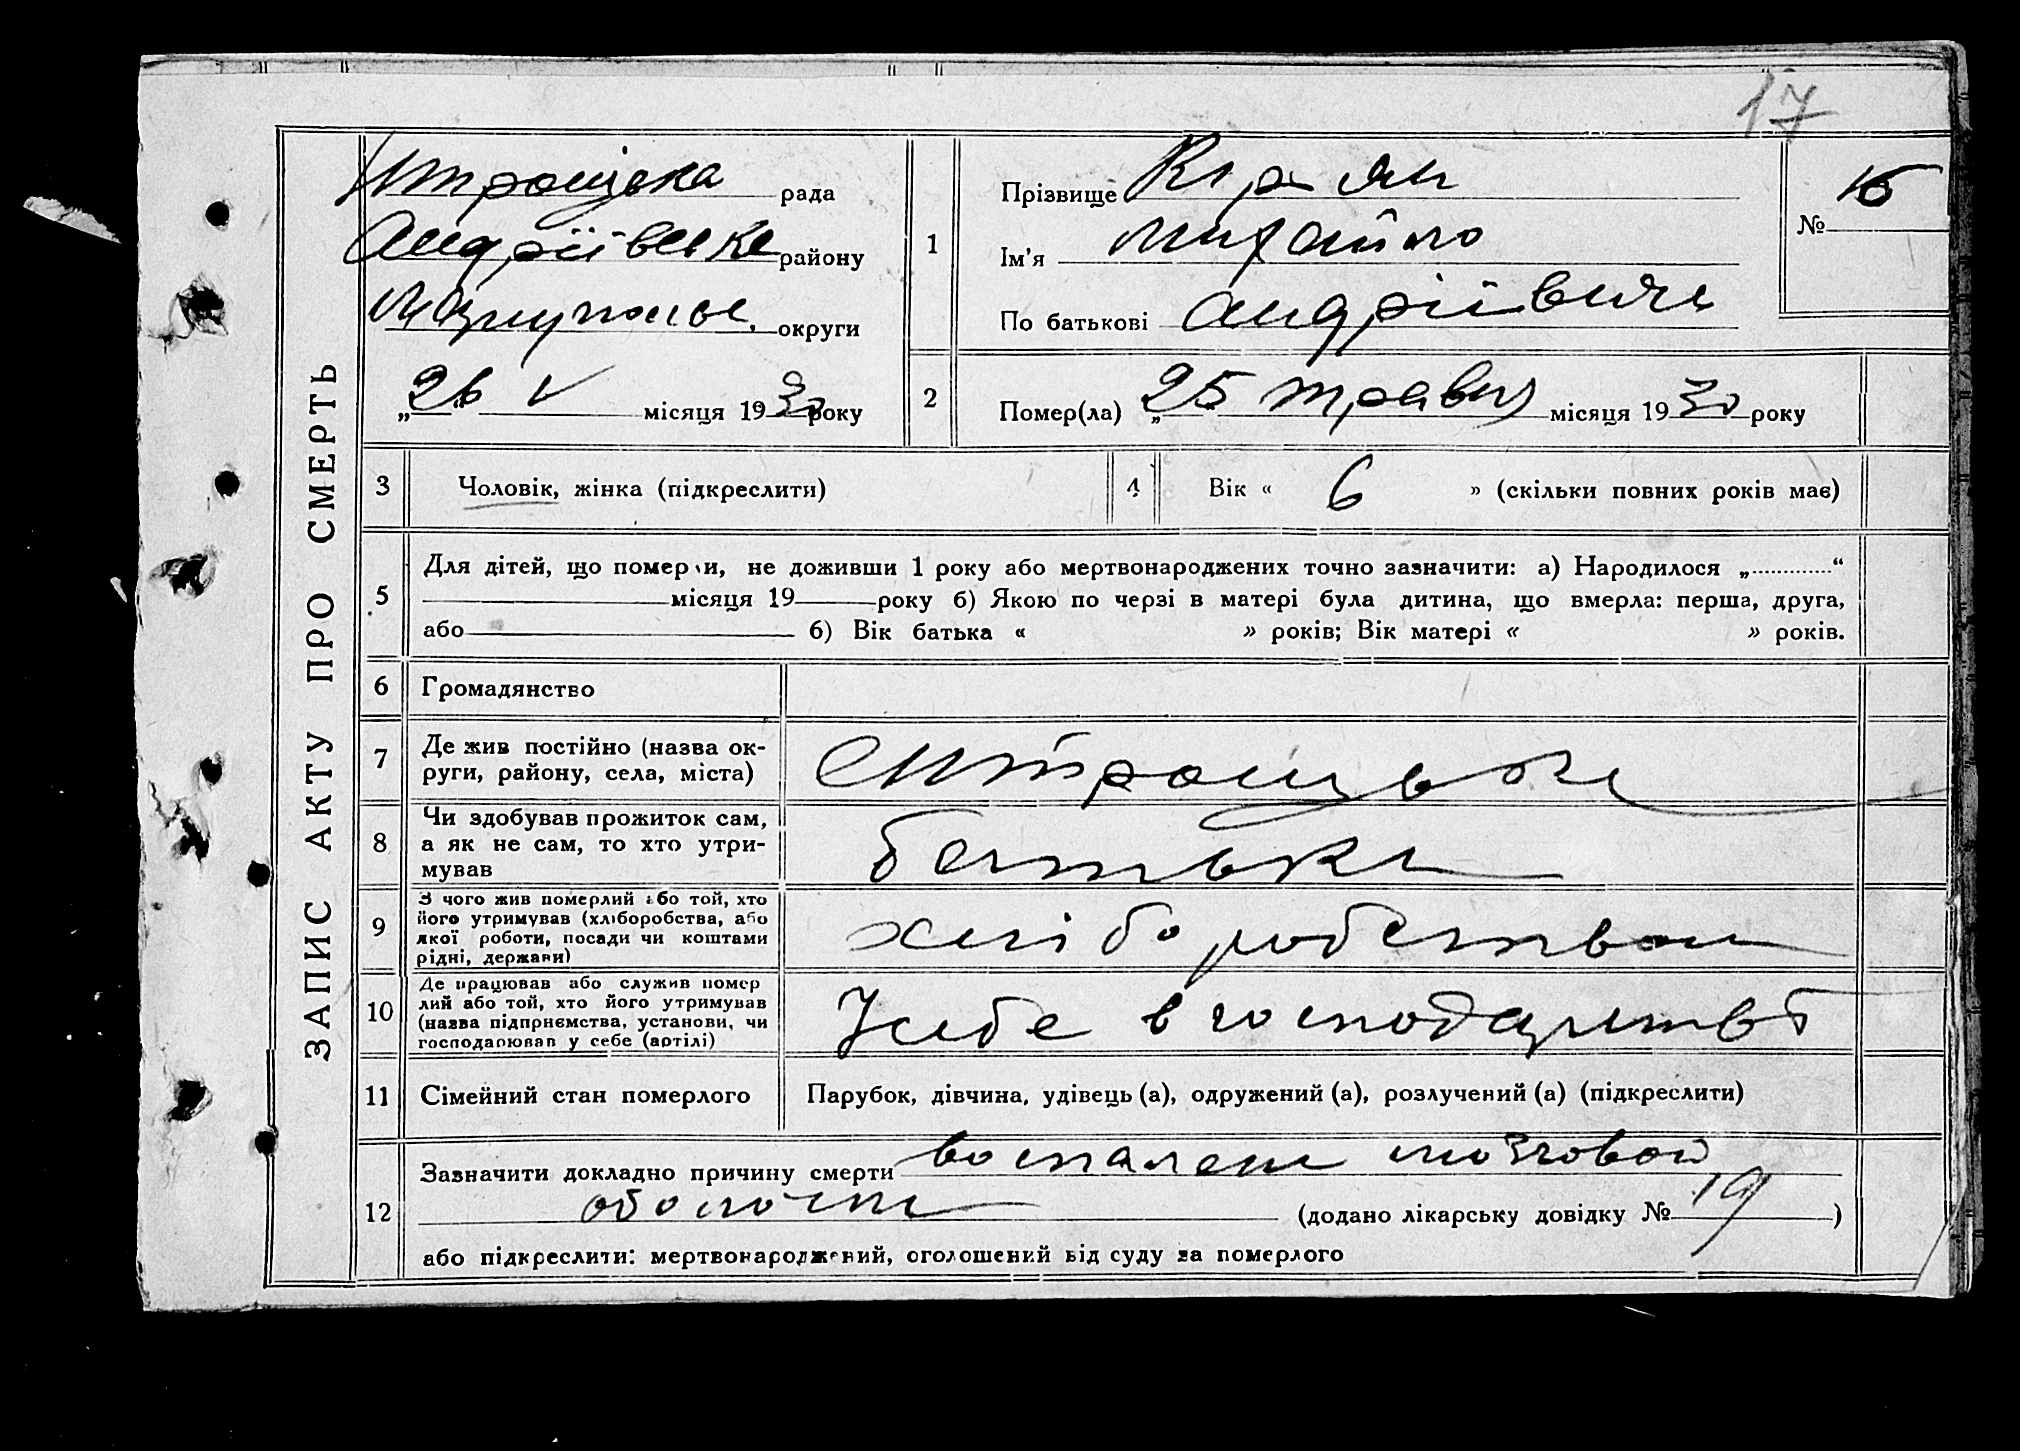 17
рада
Андріївське району
Маріупольс. округи
„26“ V місяця 1930 року
1
Прізвище Кірьян
Ім'я Михайло
По батькові Андріївичь
№ 15
2
Помер(ла) „25 травня місяця 1930 року
ЗАПИС АКТУ ПРО СМЕРТЬ
3 Чоловік, жінка (підкреслити)
4 Вік « 6 » (скільки повних років має)
5
Для дітей, що померли, не доживши 1 року або мертвонароджених точно зазначити: а) Народилося „............“
місяця 19 року б) Якою по черзі в матері була дитина, що вмерла: перша, друга,
або б) Вік батька « » років; Вік матері « » років.
6 Громадянство
7 Де жив постійно (назва ок-
руги, району, села, міста)
8 Чи здобував прожиток сам,
а як не сам, то хто утри-
мував
батько
9 З чого жив померлий або той, хто
його утримував (хліборобства, або
якої роботи, посади чи коштами
рідні, держави)
хліборобством
10 Де працював або служив помер
лий або той, хто його утримував
(назва підприємства, установи, чи
господарював у себе (артілі)
У себе в господарстві
11 Сімейний стан померлого
Парубок, дівчина, удівець (а), одружений (а), розлучений (а) (підкреслити)
12
Зазначити докладно причину смерти воспалени мозговой
оболочки (додано лікарську довідку № 19 )
або підкреслити: мертвонароджений, оголошений від суду за померлого